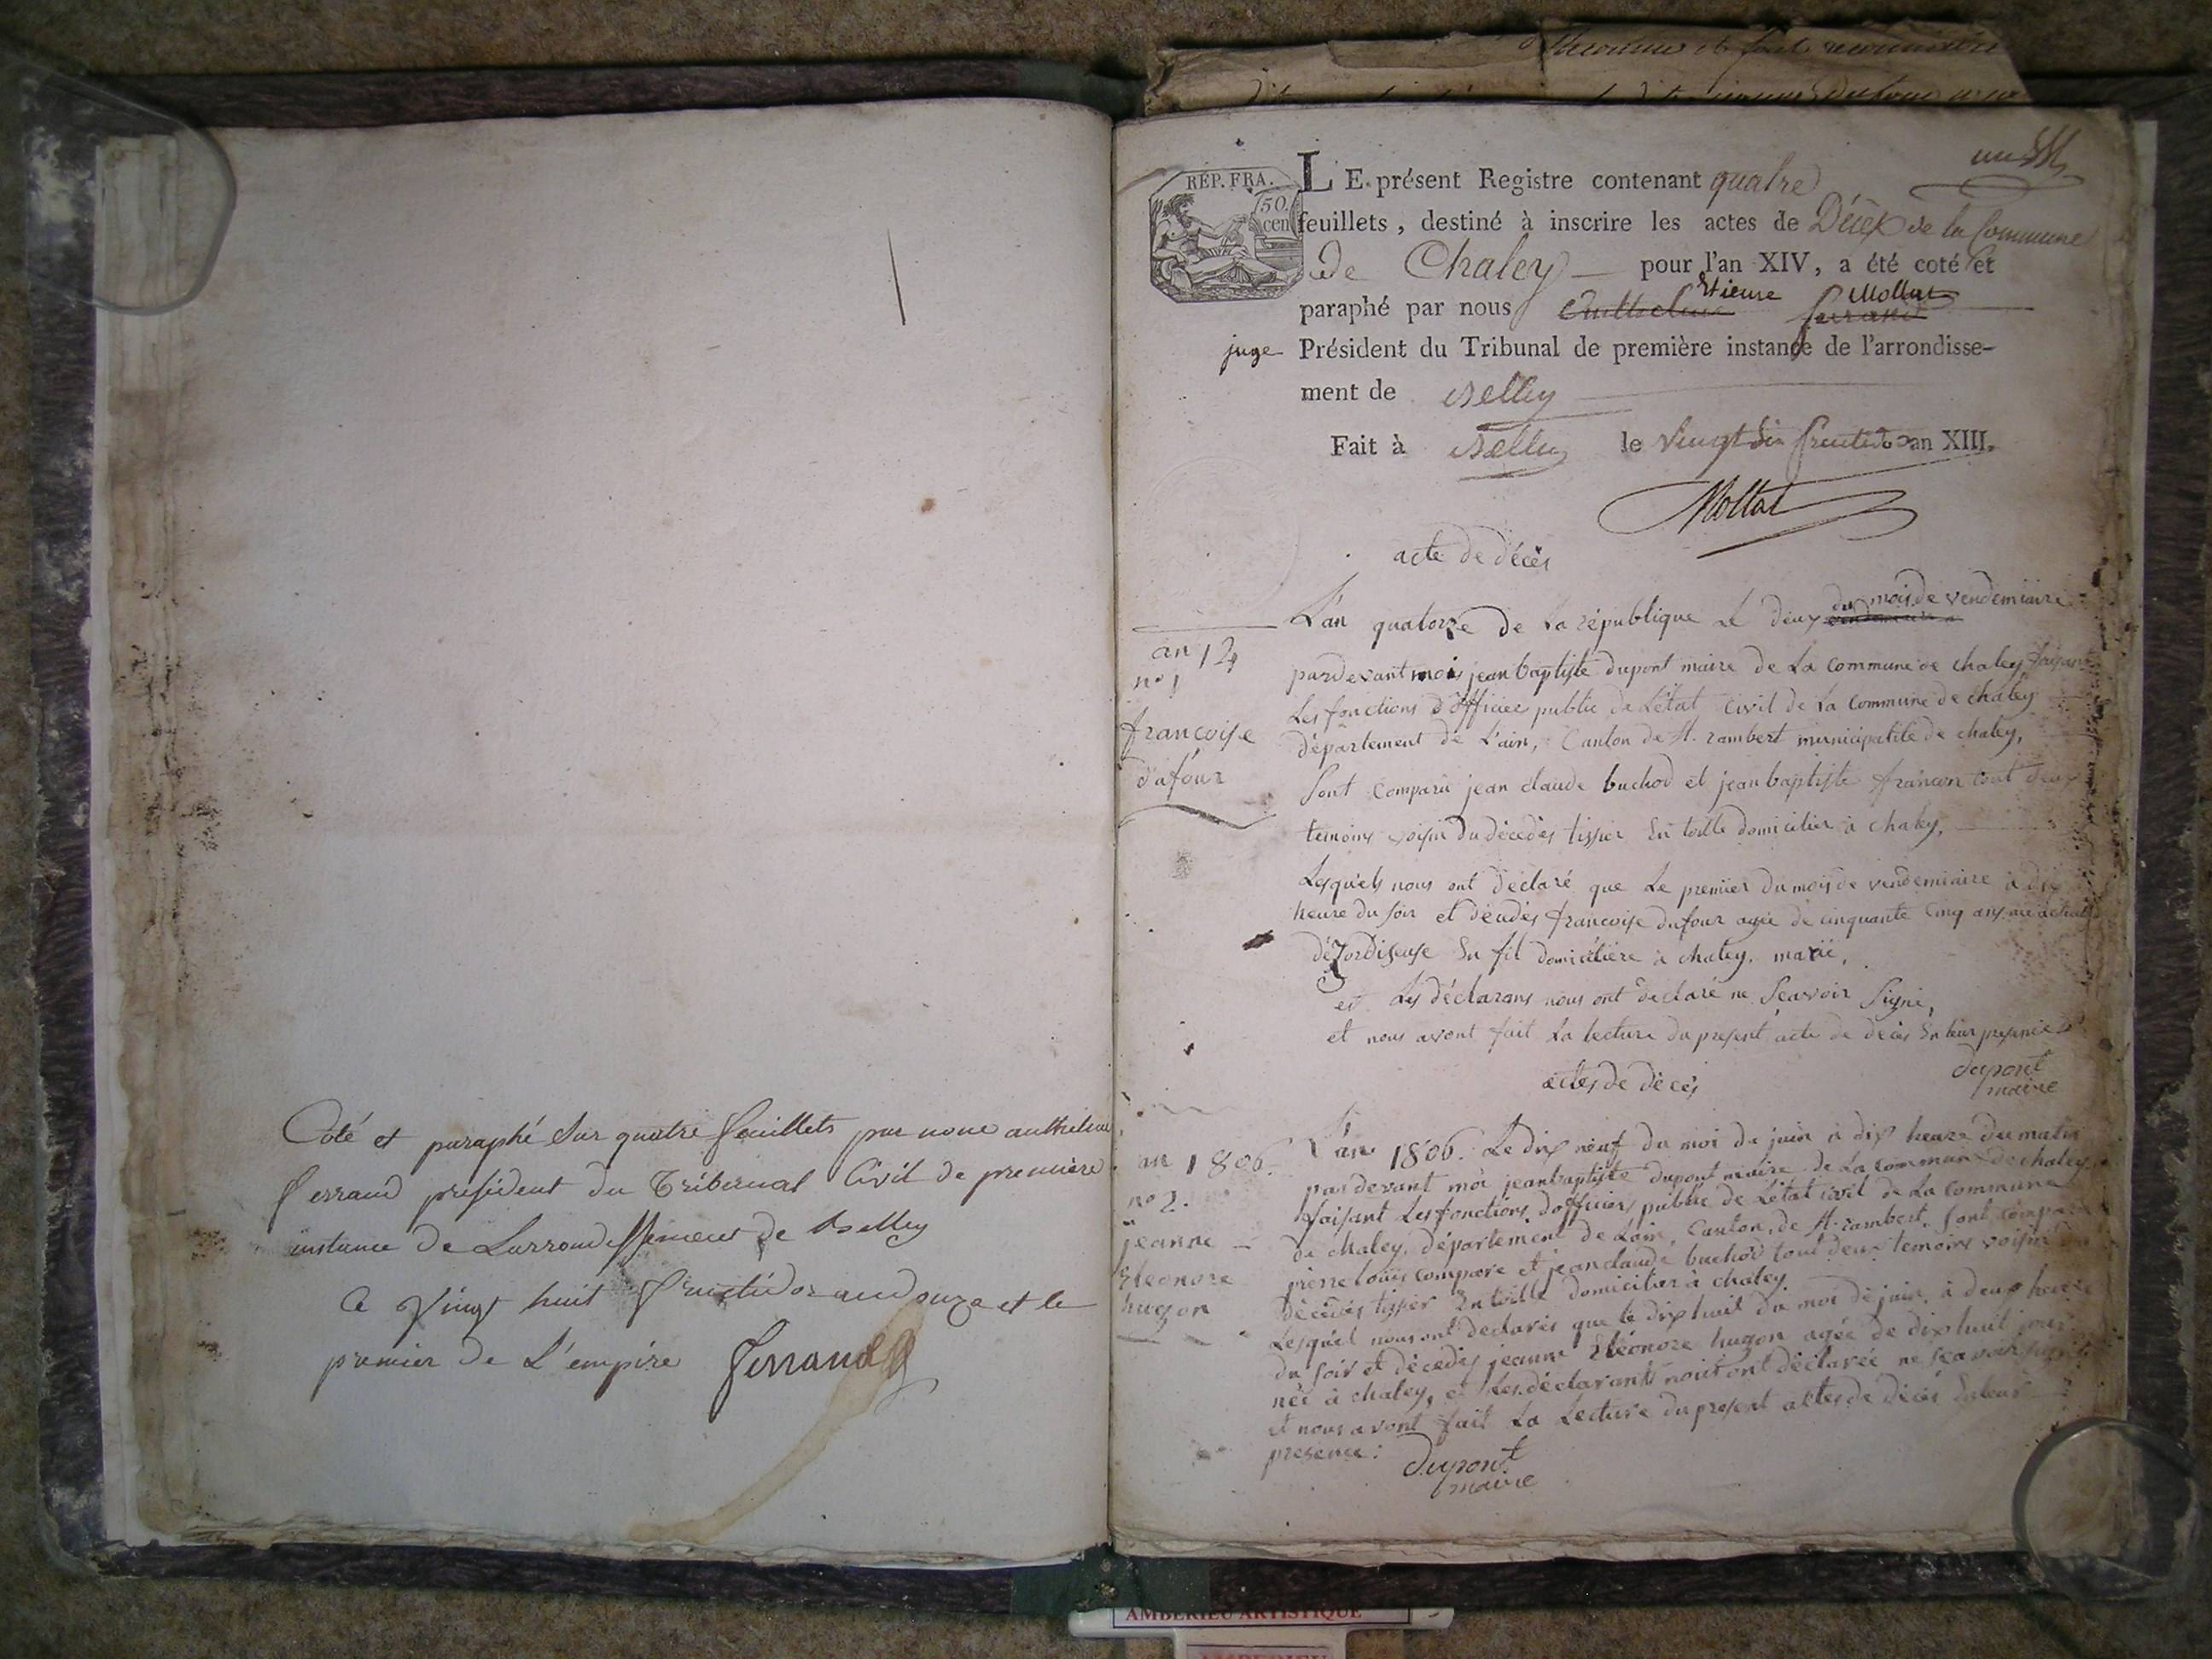 Coté et paraphé Sur quatre feuillets par nous anthelme
ferrand président du Tribunal Civil de première
instance de Larrondissement de Belley
Ce Vingt huit fructidor an douze et le
premier de L'empire ferrand
RÉP. FRA.
50.
cen
LE présent Registre contenant quatre
feuillets, destiné à inscrire les actes de Décès de la Commune
de Chaley pour l'an XIV, a été coté et
Etienne Mollat
paraphé par nous Anthelme ferrand
juge Président du Tribunal de première instance de l'arrondisse-
ment de Belley
Fait à Belley le Vingt dix fructidor an XIII.
Mollat
acte de décès
du mois de vendemiaire
L'an quatorze de La république Le deux
an 14
n° 1
francoise
dufour
pardevant moi jean baptiste dupont maire de La commune de chaley faisant
Les fonctions d'officier public de L'état civil de La Commune de chaley
département de L'ain, Canton de St. rambert municipalité de chaley,
Sont Comparu jean claude buchod et jean baptiste francon tout deux
temoins voisin du décedés tissier En toille domicilier à chaley,
Lesquels nous ont déclaré que Le premier du mois de vendemiaire à dix
heure du soir et décédés francoise dufour agée de cinquante Cinq ans
En fil domicilière à chaley, mariè,
et Les déclarans nous ont declaré ne Seavoir Signé,
et nous avont fait La lecture du present acte de décès En leur presence
dupont
maire
actes de décès
an 1806.
n° 2.
jeanne
Eléonore
hugon
L'an 1806. Le dix neuf du moi de juin à dix heure du matin
par devant moi jean baptiste dupont maire de La commune de chaley
faisant Les fonctions d'officiers public de L'état civil de La commune
de chaley, département de Lain, Canton, de St. rambert, Sont comparu
pierre louis compare et jean claude buchod tout deux temoins voisin du
décédés tissier En toille domicilier à chaley
Lesquel nous ont declarés que le dix huit du moi de juin à deux heure
du soir et décedés jeanne Eléonore hugon agée de dix huit jour
née à chaley, et Les déclarants nous ont déclarée ne Seavoir signé
et nous avont fait La Lecture du present actes de décès En leur
presence:
dupont
maire
AMBERIEU ARTISTIQUE
AMBERIEU